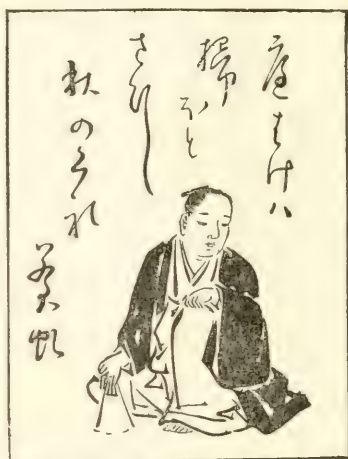 庭はけハ
掃
ほと
さひし
秋のくれ